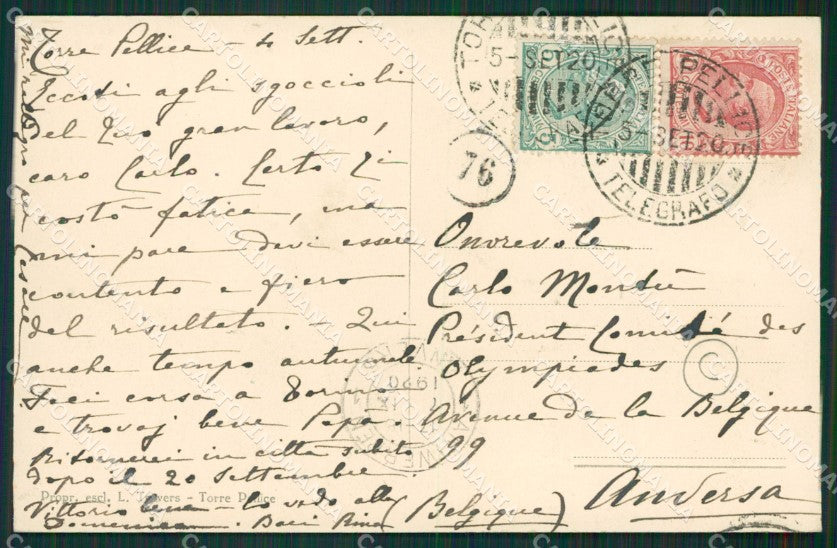 Torre Pellice – 4 Sett.
Eccoti agli sgoccioli
del tuo gran lavoro,
caro Carlo. Certo ti
costò fatica, ma
mi pare devi essere
contento e fiero
del risultato. – Qui
anche tempo autunnale
Feci corsa a Torino
e trovaj bene Papa.
Ritornerei in città subito
dopo il 20 Settembre
Vittorio bene – lo vedo alla
Domenica. – Baci
Propr. escl. L. – Torre Pellice
Onorevole
Carlo Montù
Président Comité des
Olympiades
Avenue de la Belgique
99
Anversa
(Belgique)
5-SET 20
PELLICE
-SET 20
TELEGRAFO
76
1920
C
CARTOLINOMANIA